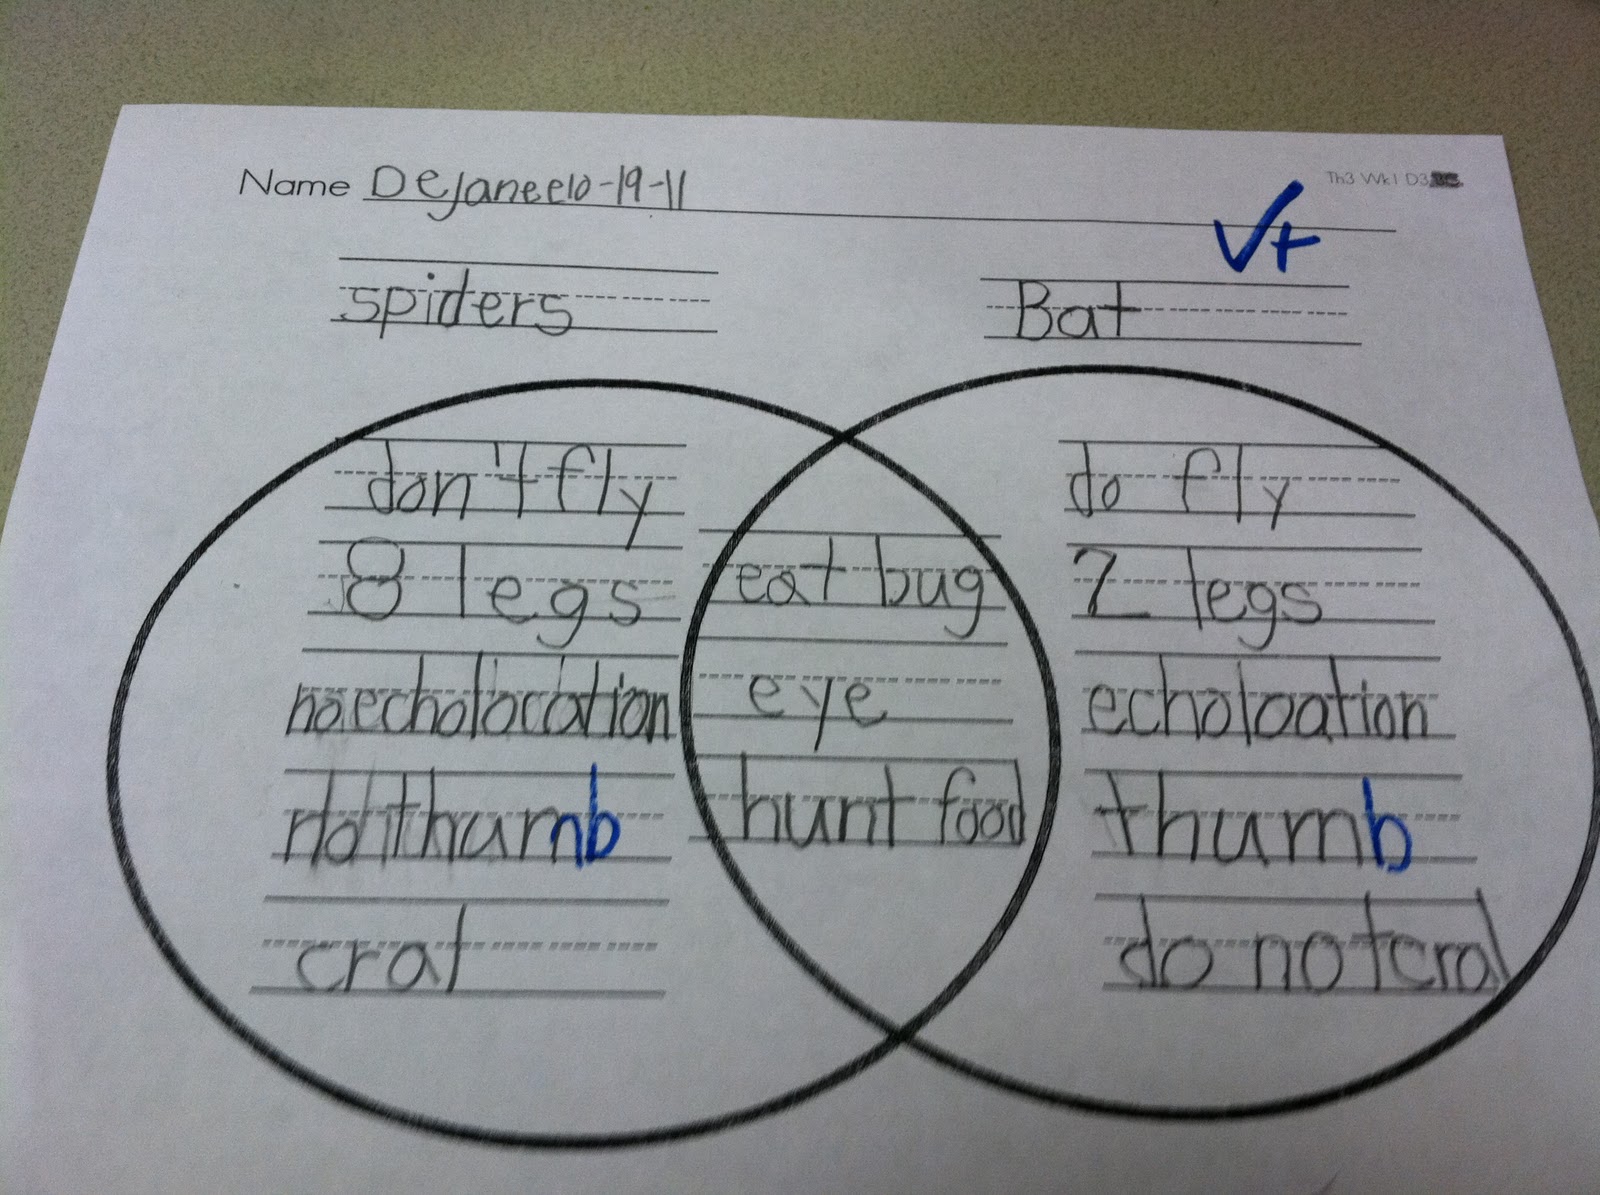 Name DeJanee 10-19-11
Th3 Wk1 D3
√+
spiders
Bat
don't fly
8 legs
no echolocation
no thumb
cral
eat bug
eye
hunt food
do fly
2 legs
echoloation
thumb
do not cral